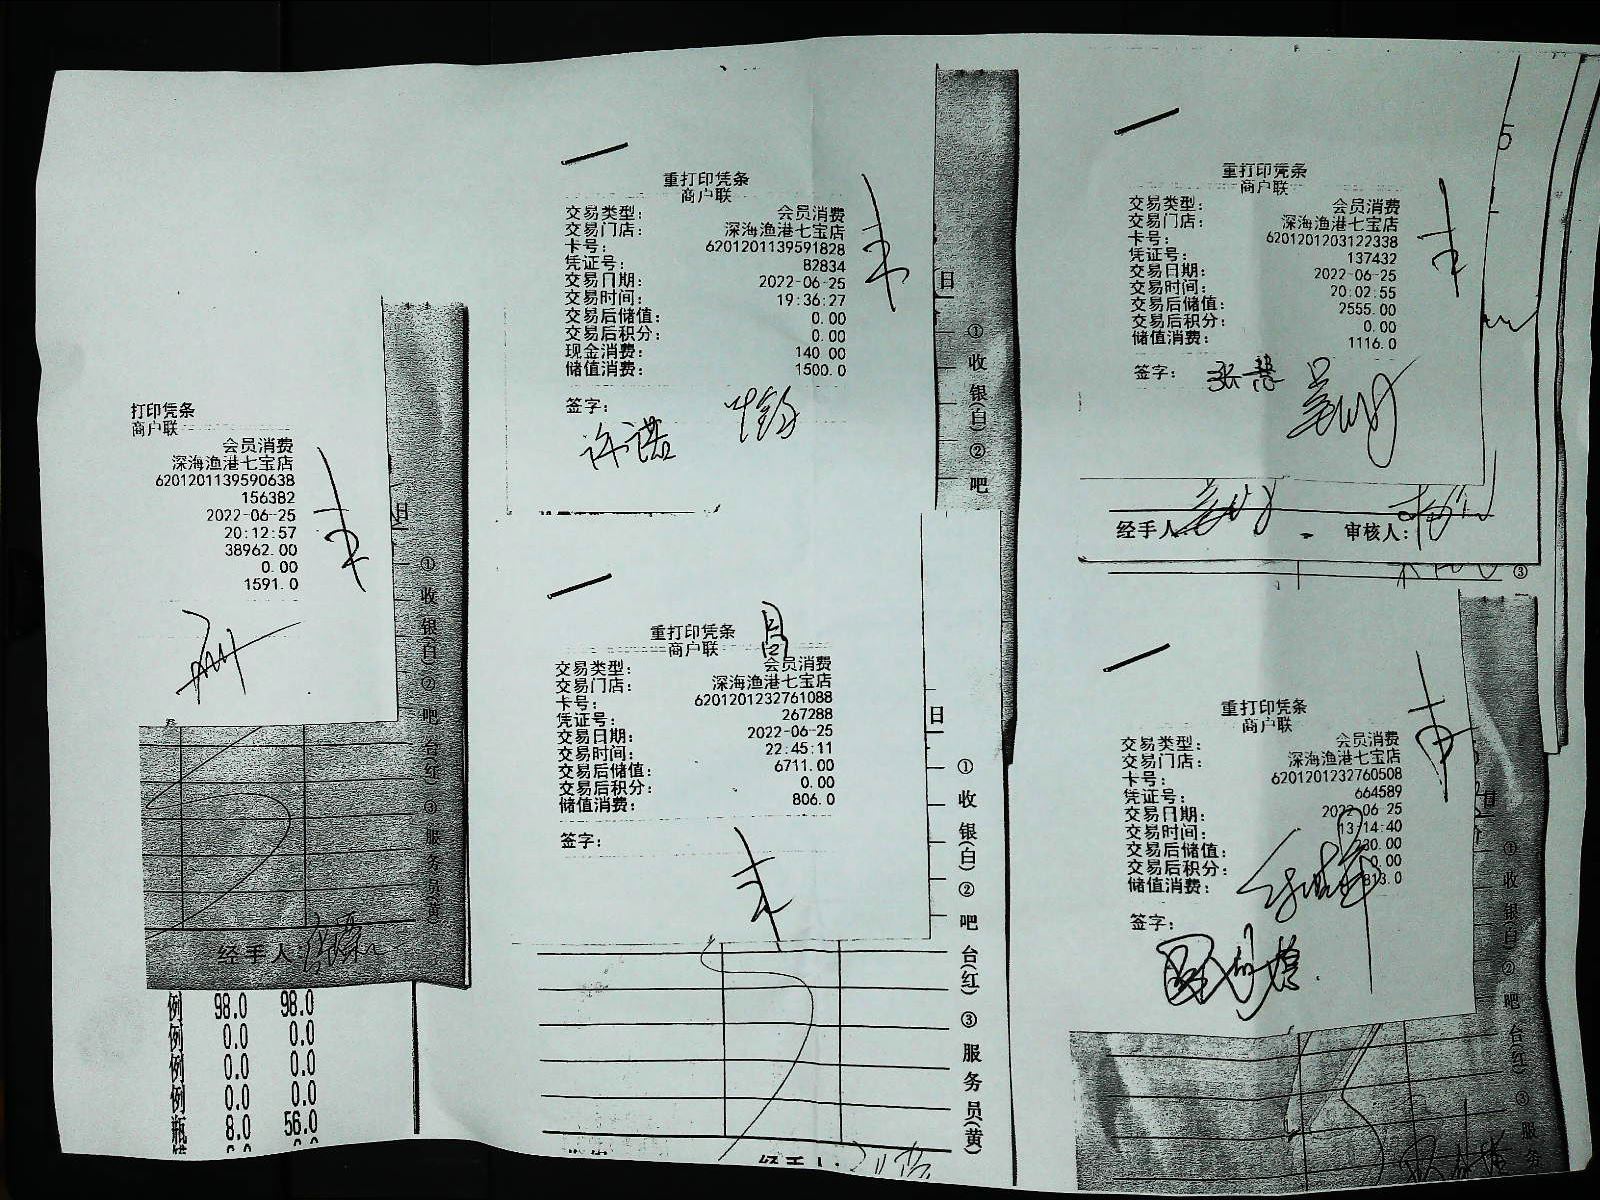 打印凭条
商户联
会员消费
深海渔港七宝店
6201201139590638
156382
2022-06-25
20:12:57
38962.00
0.00
1591.0
日
①收银(白)②吧台(红)③服务员(黄)
经手人
例 98.0 98.0
例 0.0 0.0
例 0.0 0.0
例 0.0 0.0
瓶 8.0 56.0
重打印凭条
商户联
交易类型: 会员消费
交易门店: 深海渔港七宝店
卡号: 6201201139591828
凭证号: 82834
交易日期: 2022-06-25
交易时间: 19:36:27
交易后储值: 0.00
交易后积分: 0.00
现金消费: 140.00
储值消费: 1500.0
签字:
许诺
日
①收银(白)②吧
重打印凭条
商户联
交易类型: 会员消费
交易门店: 深海渔港七宝店
卡号: 6201201232761088
凭证号: 267288
交易日期: 2022-06-25
交易时间: 22:45:11
交易后储值: 6711.00
交易后积分: 0.00
储值消费: 806.0
签字:
日
①收银(白)②吧台(红)③服务员(黄)
重打印凭条
商户联
交易类型: 会员消费
交易门店: 深海渔港七宝店
卡号: 6201201203122338
凭证号: 137432
交易日期: 2022-06-25
交易时间: 20:02:55
交易后储值: 2555.00
交易后积分: 0.00
储值消费: 1116.0
签字: 张慧
经手人 审核人:
③
重打印凭条
商户联
交易类型: 会员消费
交易门店: 深海渔港七宝店
卡号: 6201201232760508
凭证号: 664589
交易日期: 2022-06-25
交易时间: 13:14:40
交易后储值:
交易后积分: 0.00
储值消费:
签字:
①收银(白)②吧台(红)③服务